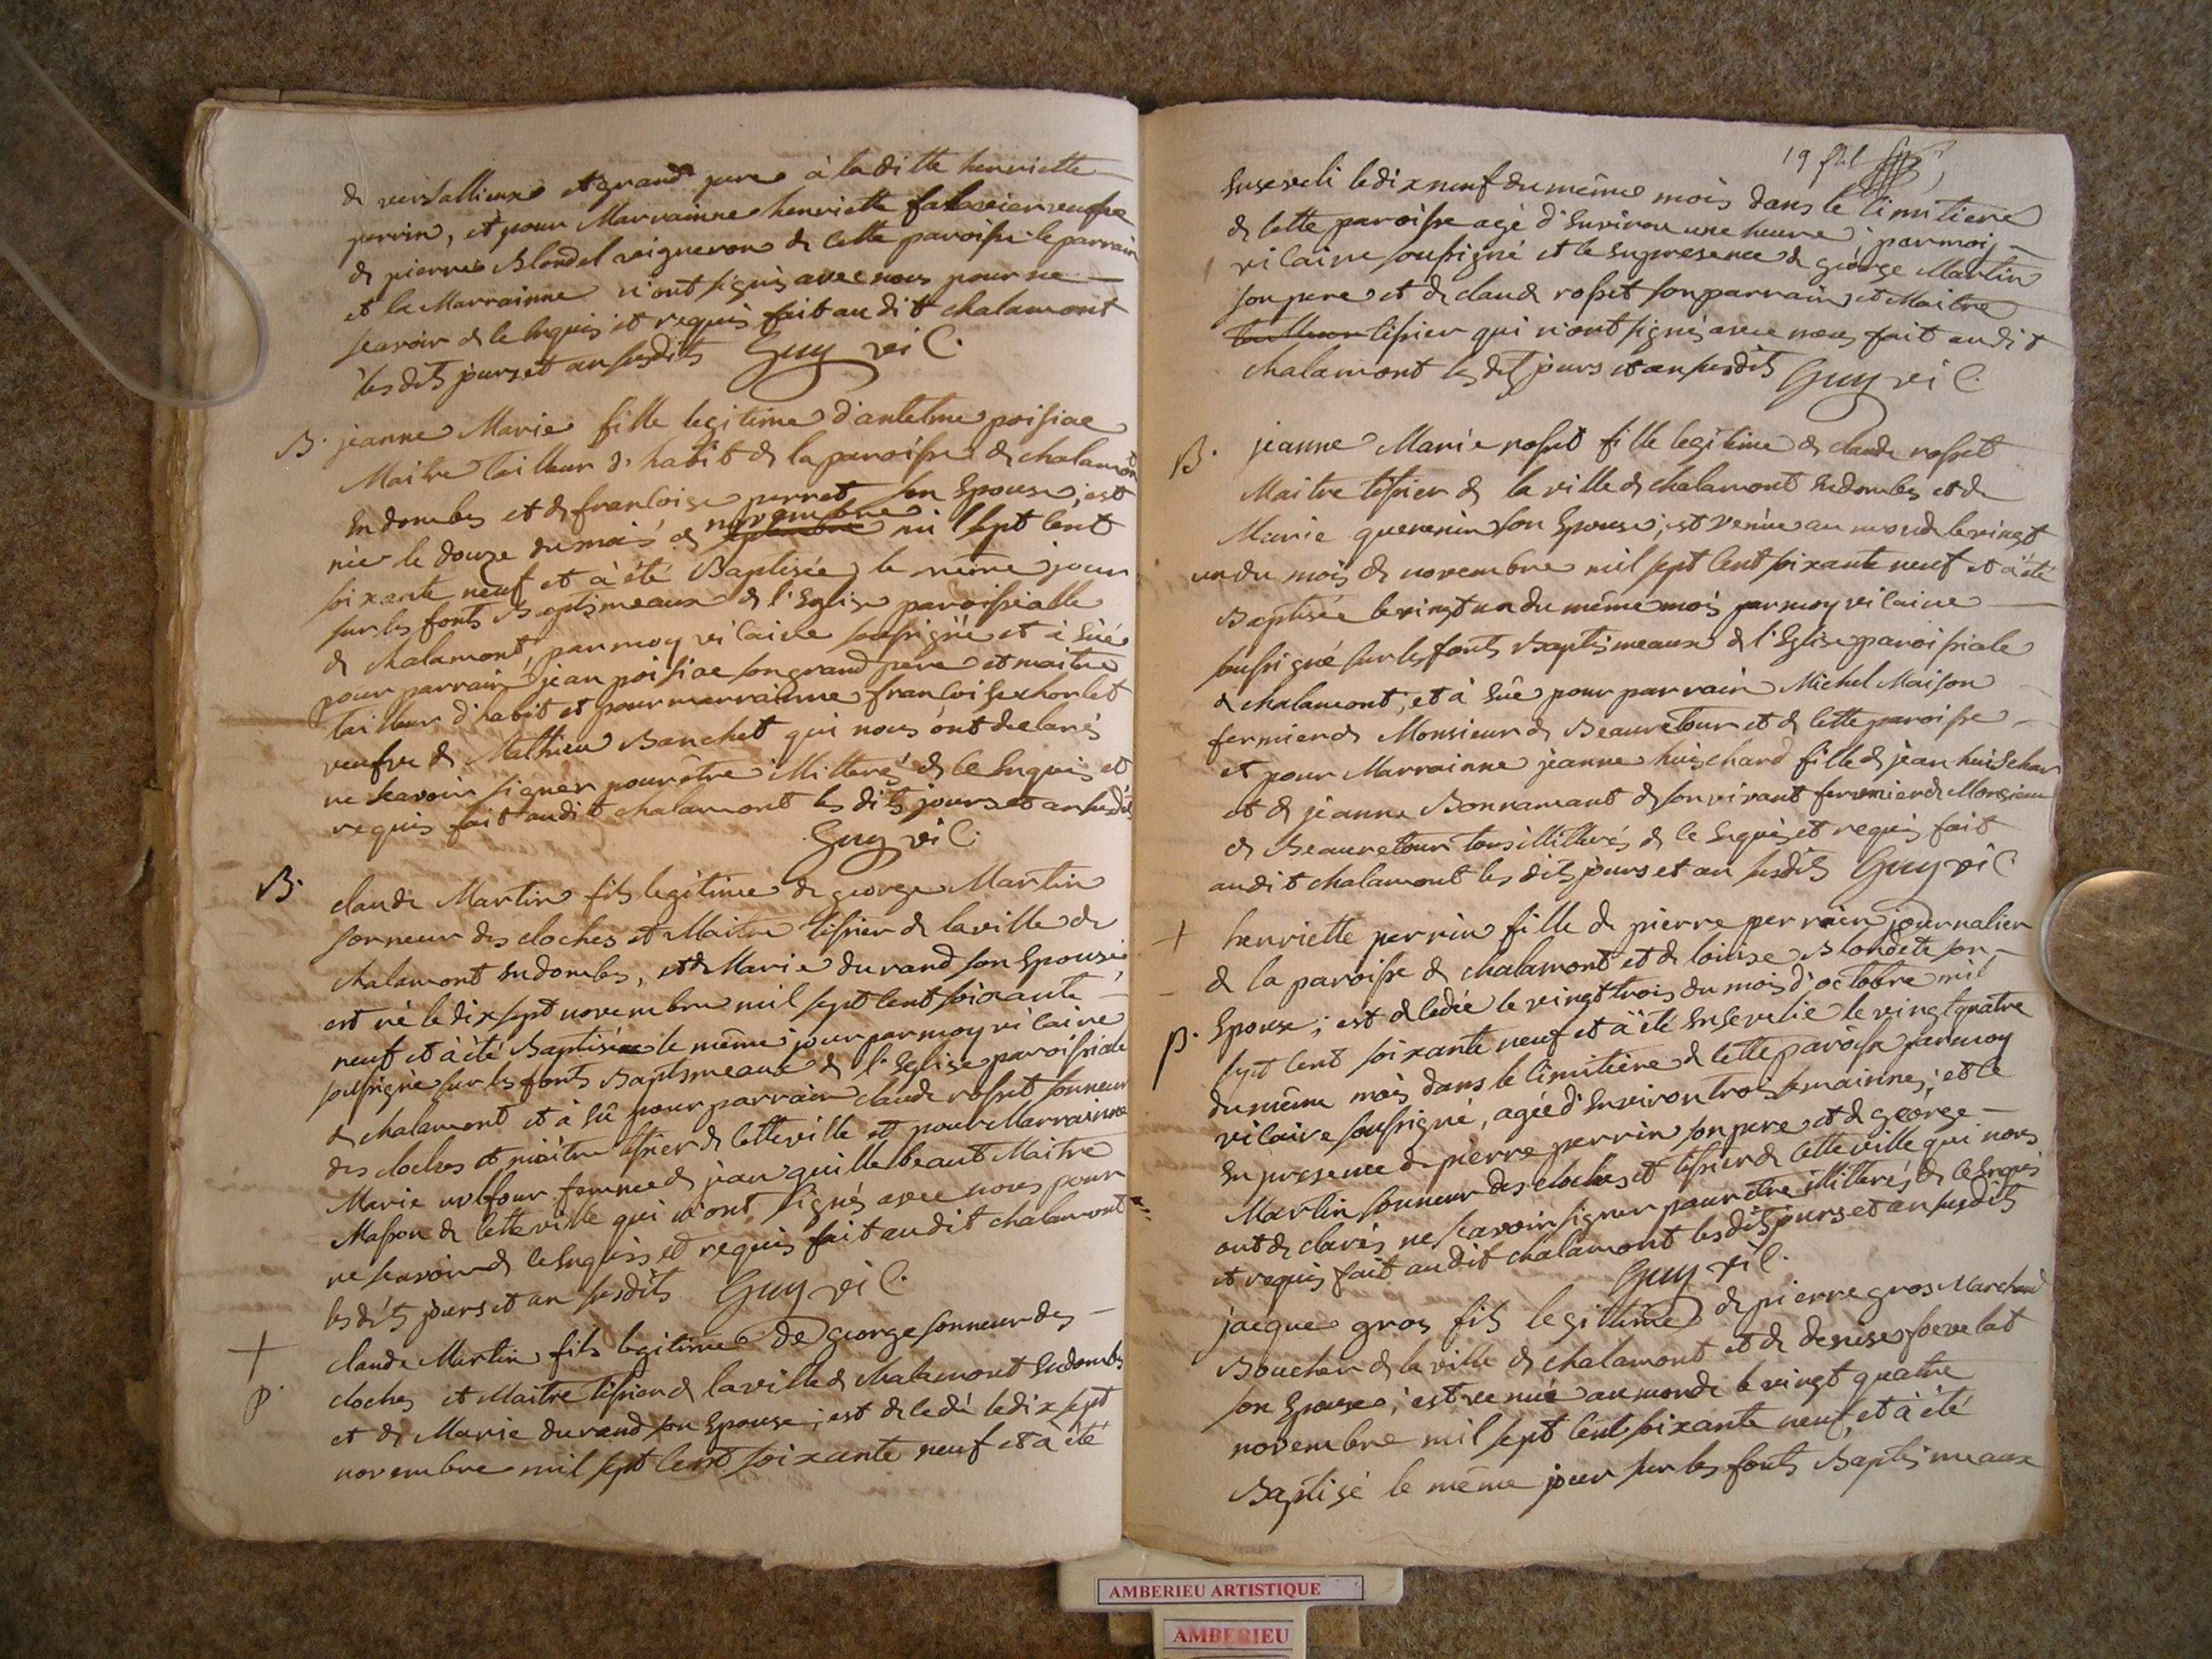 de versallieux et grand pere à la ditte henriette
perrin, et pour Marrainne henriette veufve
de pierre Blondel vigneron de cette paroisse le parrain
et la Marrainne n'ont signés avec nous pour ne
scavoir de ce enquis et requis fait au dit chalamont
les dits jours et an susdits Guy vic.
B. jeanne Marie fille legitime d'antelme poisiac
Maitre tailleur d'habit de la paroisse de chalamont
en dombes et de francoise perret son Epouse, est
née le douze du mois de septembre novembre mil sept cent
soixante neuf et à été Baptisée le même jour
sur les fonts Baptismeaux de l'Eglise paroissialle
de chalamont, par moy vicaire soussigné et à Eüé
pour parrain jean poisiac son grand pere et maitre
tailleur d'habit et pour marrainne francoise chorlet
veufve de Mathieu Banchet qui nous ont declarés
ne scavoir signer pour être illitterés de ce Enquis et
requis fait au dit chalamont les dits jours et an susdits
Guy vic.
B. claude Martin fils legitime de george Martin
sonneur des cloches et Maitre tissier de la ville de
chalamont en dombes, et de Marie durand son Epouse,
est né le dix sept novembre mil sept cent soixante
neuf et à été Baptisée le même jour par moy vicaire
soussigné sur les fonts Baptismeaux de l'Eglise paroissiale
de chalamont et à Eû pour parrain claude rosset sonneur
des cloches et maitre tissier de cette ville et pour Marrainne
Marie femme de jean quillebeaut Maitre
Masson de cette ville qui n'ont signés avec nous pour
ne scavoir de ce Enquis et requis fait au dit chalamont
les dits jours et an susdits Guy vic.
+ claude Martin fils legitime de george sonneur des
p. cloches et Maitre tissier de la ville de chalamont en dombes
et de Marie durand son Epouse; est decedé le dix sept
novembre mil sept cent soixante neuf et à été
19
Enseveli le dix neuf du même mois dans le cimitiere
de cette paroisse agé d'Environ une heure; par moy
vicaire soussigné et ce en presence de george Martin
son pere et de claude rosset son parrain et Maitre
tailleur tissier qui n'ont signés avec nous fait au dit
chalamont les dits jours et an susdits Guy vic.
B. jeanne Marie rosset fille legitime de claude rosset
Maitre tissier de la ville de chalamont en dombes et de
Marie quenenin son Epouse; est venüe au monde le vingt
un du mois de novembre mil sept cent soixante neuf et à été
Baptisée le vingt un du même mois par moy vicaire
soussigné sur les fonts Baptismeaux de l'Eglise paroissiale
de chalamont, et à Eüe pour parrain Michel Maison
fermier de Monsieur de Beauretour et de cette paroisse
et pour Marrainne jeanne huischard fille de jean huischar
et de jeanne Bonnamant de son vivant fermier de Monsieur
de Beauretour tous illitterés de ce Enquis et requis fait
au dit chalamont les dits jours et an susdits Guy vic
+ henriette perrin fille de pierre perrin journalier
de la paroisse de chalamont et de louise Blondete son
Epouse; est decedée le vingt trois du mois d'octobre mil
p. sept cent soixante neuf et à été Ensevelie le vingt quatre
du même mois dans le cimitiere de cette paroisse par moy
vicaire soussigné, agée d'Environ trois semainnes; et ce
En presence de pierre perrin son pere et de george
Martin sonneur des cloches et tissier de cette ville qui nous
ont declarés ne scavoir signer pour être illitterés de ce Enquis
et requis fait au dit chalamont les dits jours et an susdits
Guy vic.
jacque gros fils legitime de pierre gros Marchand
Boucher de la ville de chalamont et de denise
son Epouse; est venüe au monde le vingt quatre
novembre mil sept cent soixante neuf, et à été
Baptisé le même jour sur les fonts Baptismeaux
AMBERIEU ARTISTIQUE
AMBERIEU